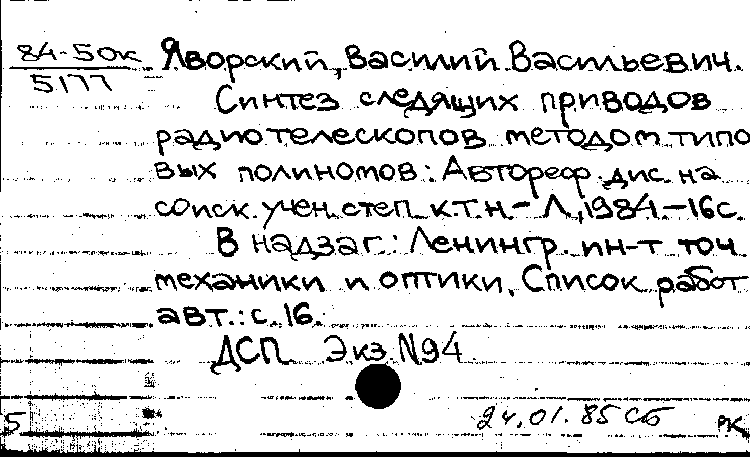 84-50к
5177
Яворский, Василий Васильевич.
Синтез следящих приводов
радиотелескопов методом типо
вых полиномов: Автореф. дис. на
соиск. учен. степ. к.т.н. - Л., 1984. - 16с.
В надзаг.: Ленингр. ин-т точ.
механики и оптики. Список работ
авт.: с. 16.
ДСП Экз. N94
5
24.01.85 Сб
РК